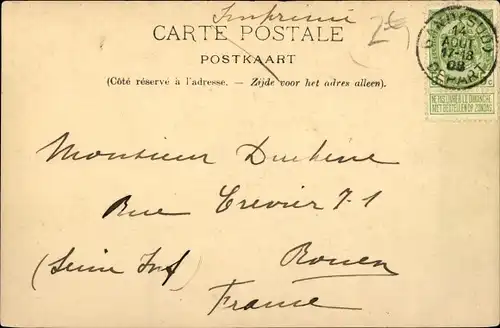 Imprimé
CARTE POSTALE
POSTKAART
(Côté réservé à l'adresse. — Zijde voor het adres alleen).
14
AOUT
08
DEPART
NE PAS LIVRER LE DIMANCHE
NIET BESTELLEN OP ZONDAG
Monsieur Duchêne
Rue Crevier 71
(Seine Inf) Rouen
France